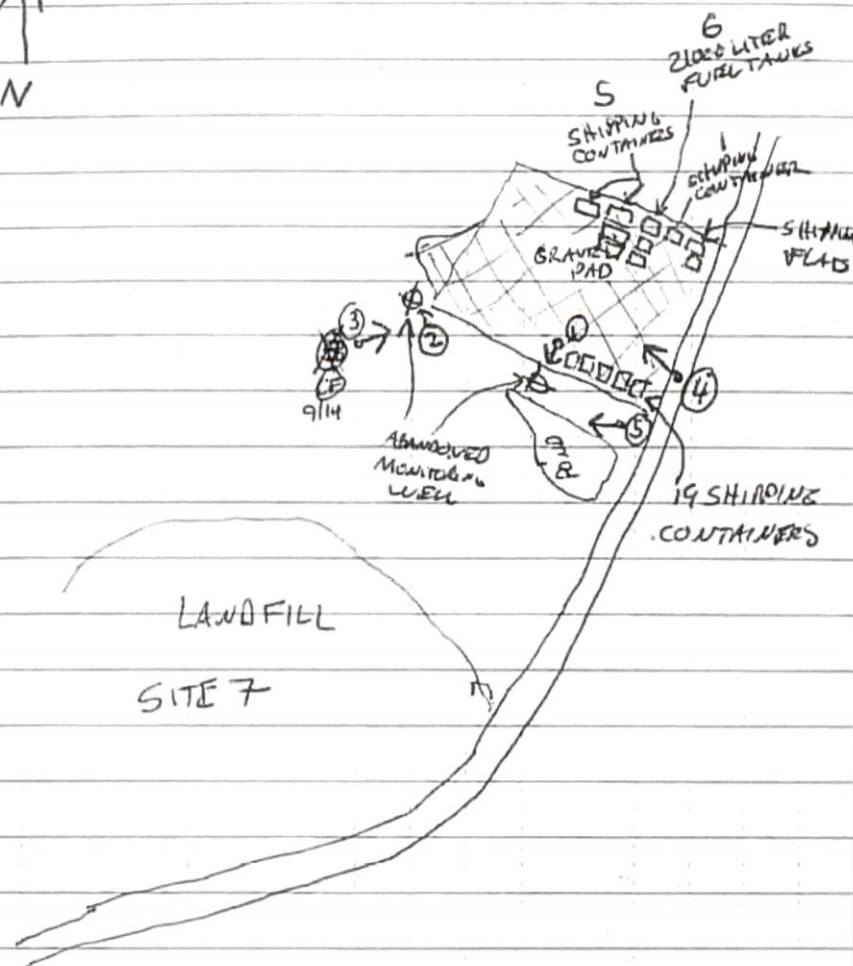 N
6
21000 LITER
FUEL TANKS
5
SHIPPING
CONTAINERS
1
SHIPPING
CONTAINER
GRAVEL
PAD
3
2
1
4
5
9/14
ABANDONED
MONITORING
WELL
19 SHIPPING
CONTAINERS
LANDFILL
SITE 7